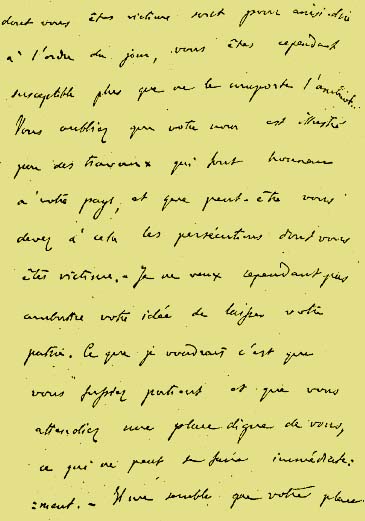 dont vous êtes victime sont pour ainsi dire
à l'ordre du jour, vous êtes cependant
susceptible plus que ne le comporte l'ambit..
Vous oubliez que votre nom est illustré
par des travaux qui font honneur
à votre pays, et que peut-être vous
devez à cela les persécutions dont vous
êtes victime. - Je ne veux cependant pas
combattre votre idée de laisser votre
patrie. Ce que je voudrais c'est que
vous fussiez patient et que vous
attendiez une place digne de vous,
ce qui ne peut se faire immédiate:
=ment. - Il me semble que votre place